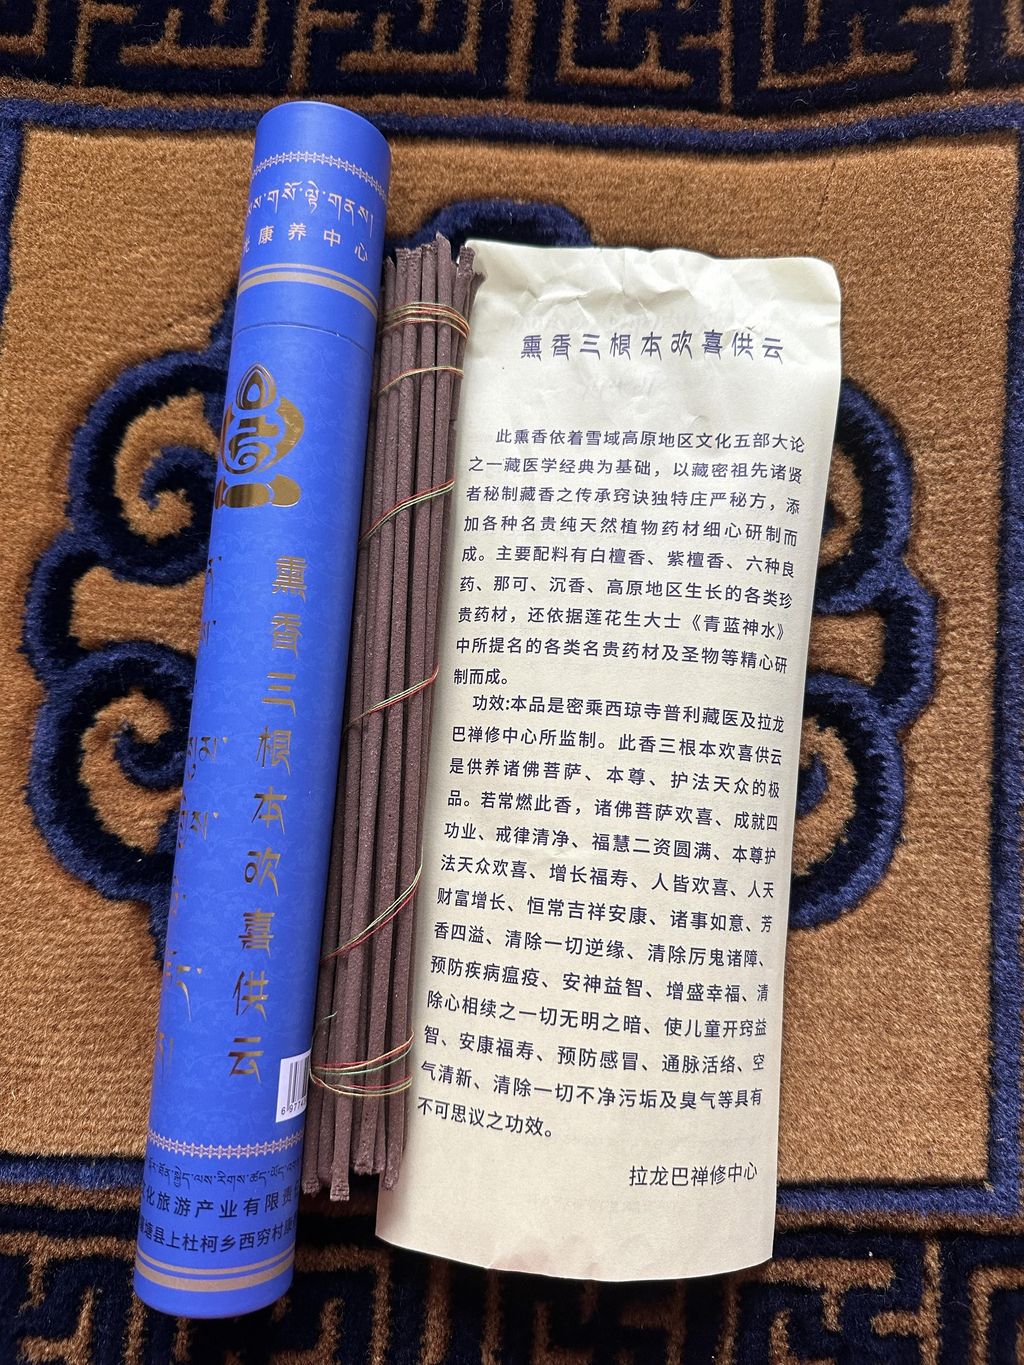 གསོ་ལྟེ་གནས།
康养中心
熏香三根本欢喜供云
6 977
化旅游产业有限责
塘县上杜柯乡西穷村康
熏香三根本欢喜供云
此熏香依着雪域高原地区文化五部大论
之一藏医学经典为基础，以藏密祖先诸贤
者秘制藏香之传承窍诀独特庄严秘方，添
加各种名贵纯天然植物药材细心研制而
成。主要配料有白檀香、紫檀香、六种良
药、那可、沉香、高原地区生长的各类珍
贵药材，还依据莲花生大士《青蓝神水》
中所提名的各类名贵药材及圣物等精心研
制而成。
功效:本品是密乘西琼寺普利藏医及拉龙
巴禅修中心所监制。此香三根本欢喜供云
是供养诸佛菩萨、本尊、护法天众的极
品。若常燃此香，诸佛菩萨欢喜、成就四
功业、戒律清净、福慧二资圆满、本尊护
法天众欢喜、增长福寿、人皆欢喜、人天
财富增长、恒常吉祥安康、诸事如意、芳
香四溢、清除一切逆缘、清除厉鬼诸障、
预防疾病瘟疫、安神益智、增盛幸福、清
除心相续之一切无明之暗、使儿童开窍益
智、安康福寿、预防感冒、通脉活络、空
气清新、清除一切不净污垢及臭气等具有
不可思议之功效。
拉龙巴禅修中心